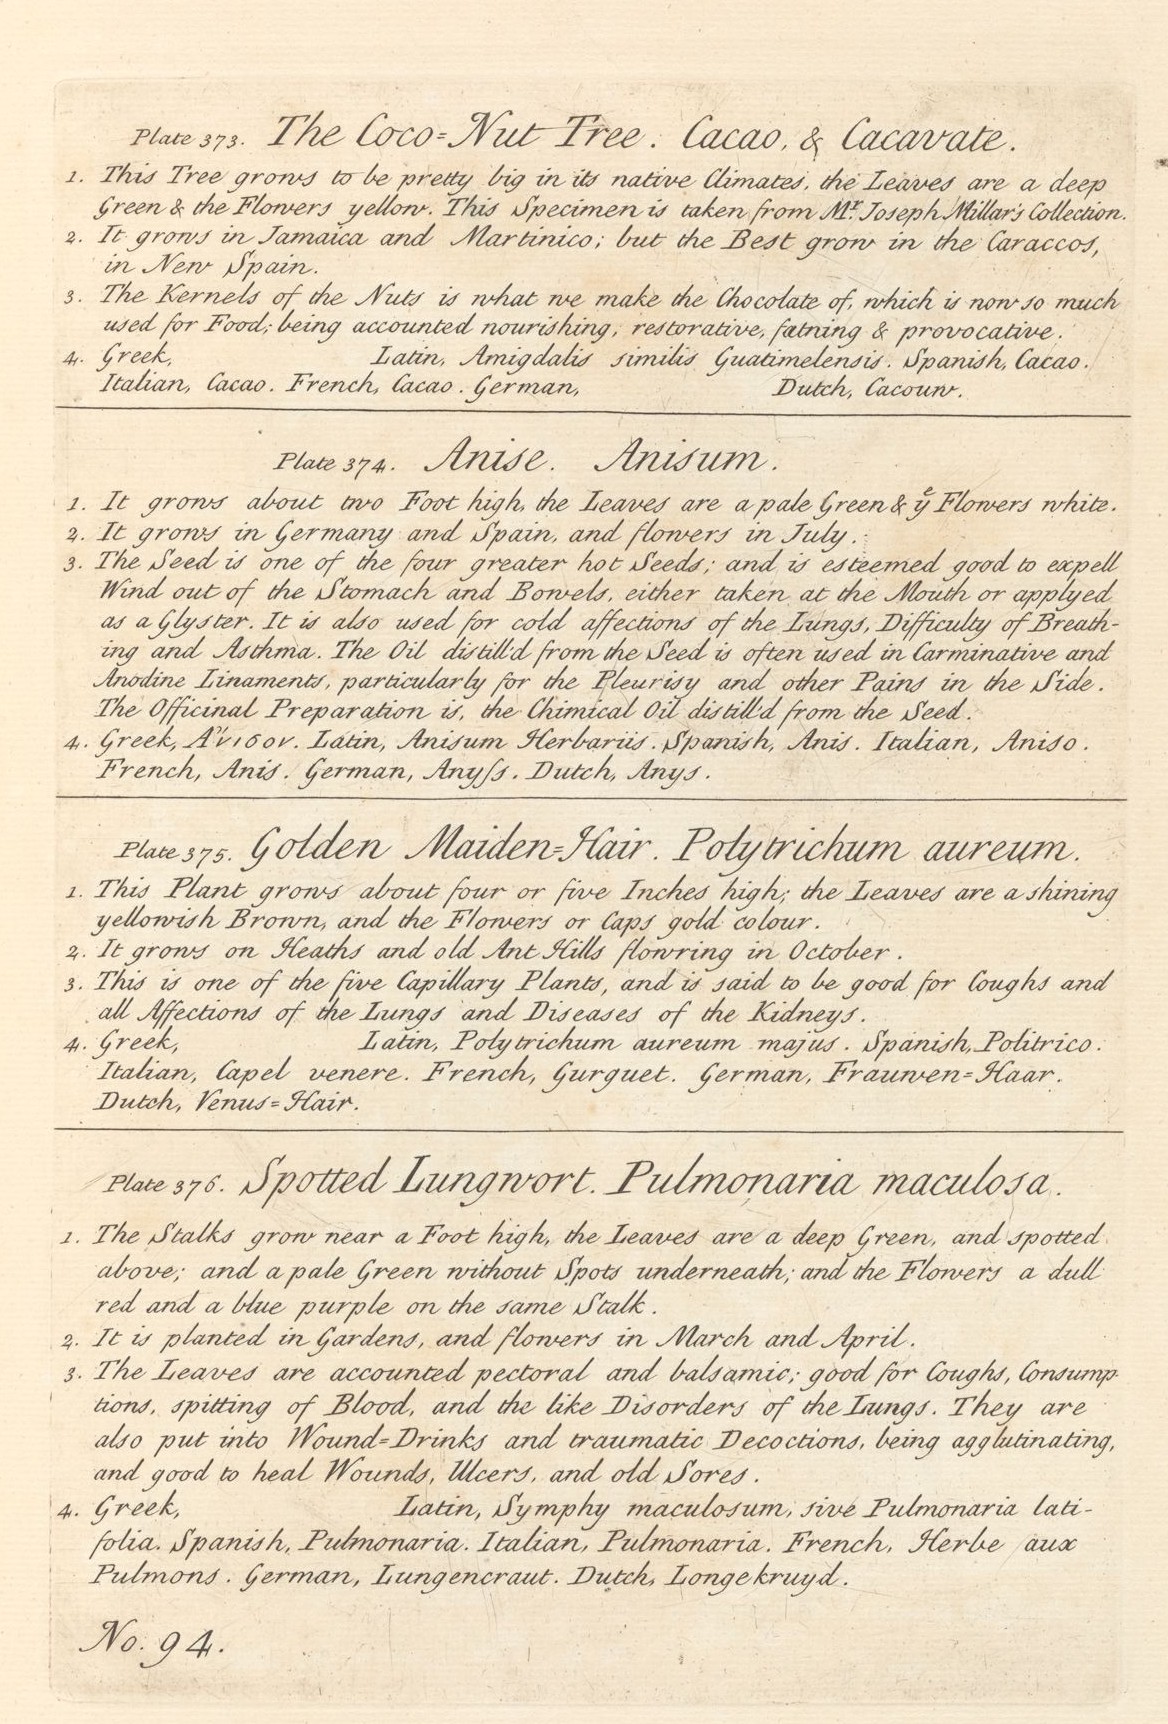 Plate 373. The Coco=Nut Tree. Cacao, & Cacavate.
1. This Tree grows to be pretty big in its native Climates, the Leaves are a deep
Green & the Flowers yellow. This Specimen is taken from Mr. Joseph Millar's Collection.
2. It grows in Jamaica and Martinico; but the Best grow in the Caraccos,
in New Spain.
3. The Kernels of the Nuts is what we make the Chocolate of, which is now so much
used for Food; being accounted nourishing, restorative, fatning & provocative.
4. Greek, Latin, Amigdalis similis Guatimelensis. Spanish, Cacao.
Italian, Cacao. French, Cacao. German, Dutch, Cacouw.
Plate 374. Anise. Anisum.
1. It grows about two Foot high, the Leaves are a pale Green & ye Flowers white.
2. It grows in Germany and Spain, and flowers in July.
3. The Seed is one of the four greater hot Seeds; and is esteemed good to expell
Wind out of the Stomach and Bowels, either taken at the Mouth or applyed
as a Glyster. It is also used for cold affections of the Lungs, Difficulty of Breath-
ing and Asthma. The Oil distill'd from the Seed is often used in Carminative and
Anodine Linaments, particularly for the Pleurisy and other Pains in the Side.
The Officinal Preparation is, the Chimical Oil distill'd from the Seed.
4. Greek, Ἄνισον. Latin, Anisum Herbariis. Spanish, Anis. Italian, Aniso.
French, Anis. German, Anyſs. Dutch, Anys.
Plate 375. Golden Maiden=Hair. Polytrichum aureum.
1. This Plant grows about four or five Inches high; the Leaves are a shining
yellowish Brown, and the Flowers or Caps gold colour.
2. It grows on Heaths and old Ant Hills flowring in October.
3. This is one of the five Capillary Plants, and is said to be good for Coughs and
all Affections of the Lungs and Diseases of the Kidneys.
4. Greek, Latin, Polytrichum aureum majus. Spanish, Politrico.
Italian, Capel venere. French, Gurguet. German, Frauwen=Haar.
Dutch, Venus=Hair.
Plate 376. Spotted Lungwort. Pulmonaria maculosa.
1. The Stalks grow near a Foot high, the Leaves are a deep Green, and spotted
above; and a pale Green without Spots underneath; and the Flowers a dull
red and a blue purple on the same Stalk.
2. It is planted in Gardens, and flowers in March and April.
3. The Leaves are accounted pectoral and balsamic; good for Coughs, Consump-
tions, spitting of Blood, and the like Disorders of the Lungs. They are
also put into Wound=Drinks and traumatic Decoctions, being agglutinating,
and good to heal Wounds, Ulcers, and old Sores.
4. Greek, Latin, Symphy maculosum, sive Pulmonaria lati-
folia. Spanish, Pulmonaria. Italian, Pulmonaria. French, Herbe aux
Pulmons. German, Lungencraut. Dutch, Longekruyd.
No. 94.